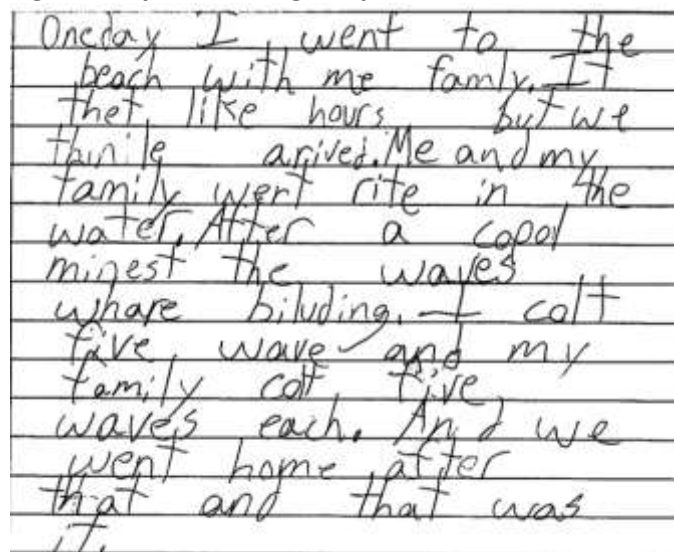 Oneday I went to the
beach with me famly. It
thet like hours but we
thinile arived. Me and my
family went rite in the
water. After a copol
minest the waves
whare biluding. I colt
five wave and my
family colt five
waves each. And we
went home after
that and that was
it.